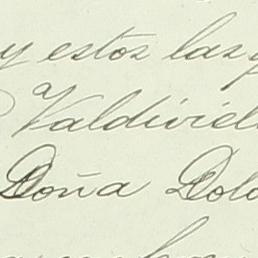 y estos las
a Valdiviel
Doña Dolo